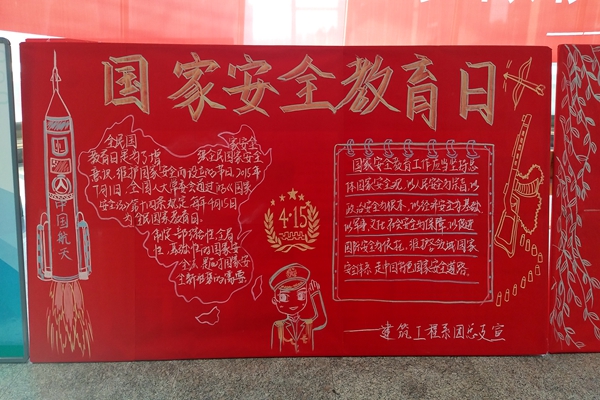 国家安全教育日
中国航天
全民国家安全
教育日是为了增强全民国家安全
意识,维护国家安全而设立的节日。2015年
7月1日,全国人大常委会通过的《国家
安全法》第十四条规定,每年4月15日
为全民国家教育日。
4·15
国家安全教育工作应当坚持总
体国家安全观,以人民安全为宗旨,以
政治安全为根本,以经济安全为基础
以军事、文化、社会安全为保障,以促进
国际安全为依托,维护各领域国家
安全体系,走中国特色国家安全道路。
——建筑工程系团总支宣